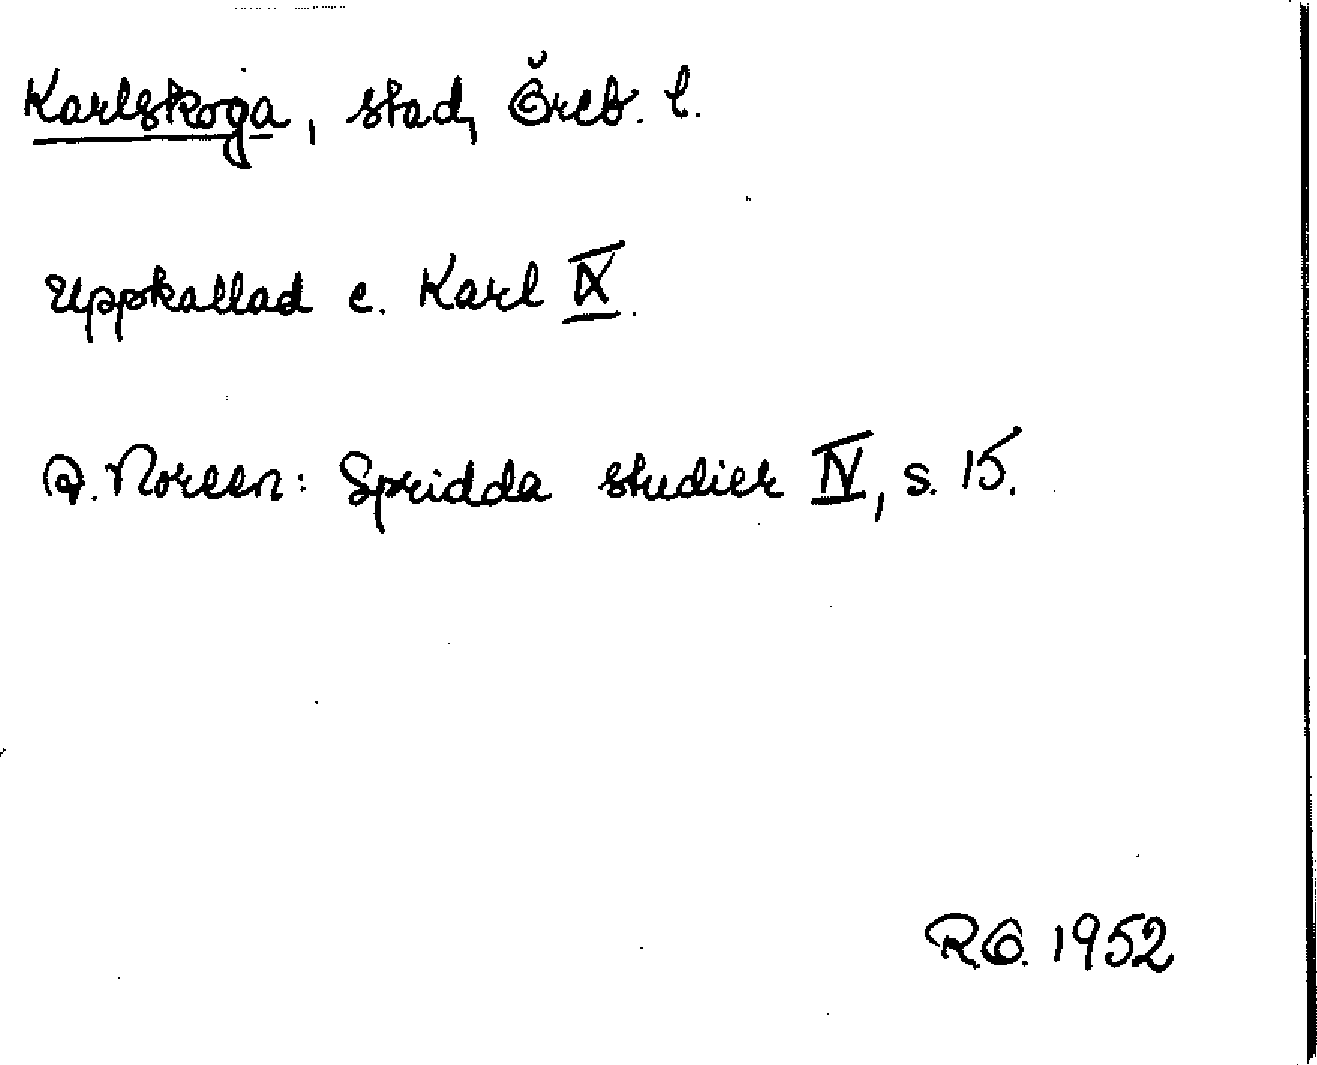 Karlskoga, stad, Öreb. l.
Uppkallad e. Karl IX.
A. Noreen: Spridda studier IV, s. 15.
R.O. 1952